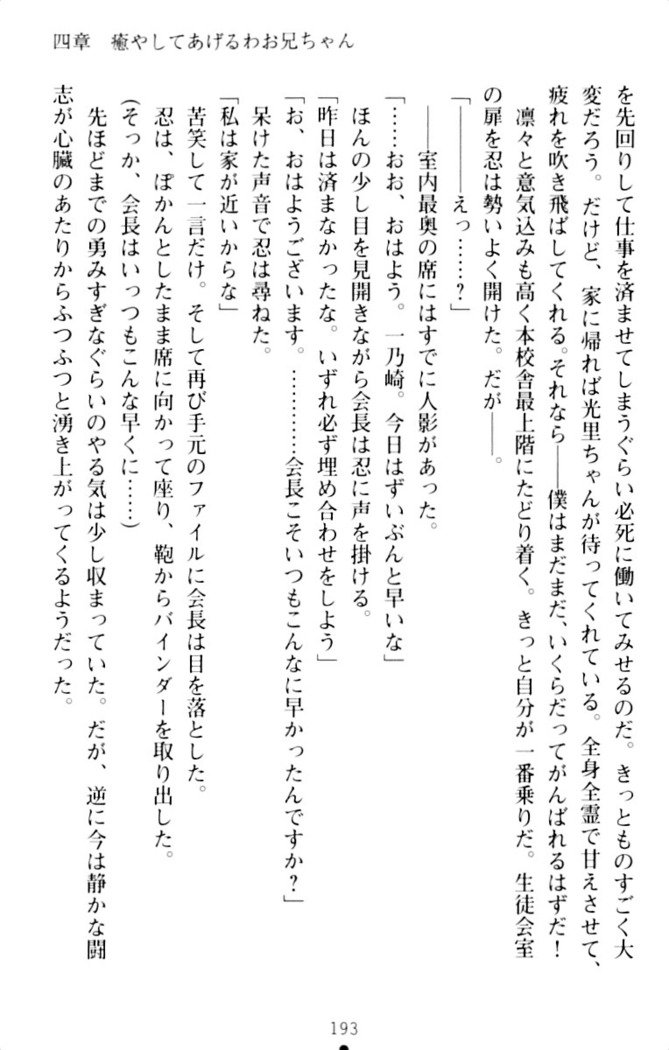 四章　癒やしてあげるわお兄ちゃん
を先回りして仕事を済ませてしまうぐらい必死に働いてみせるのだ。きっとものすごく大
変だろう。だけど、家に帰れば光里ちゃんが待ってくれている。全身全霊で甘えさせて、
疲れを吹き飛ばしてくれる。それなら――僕はまだまだ、いくらだってがんばれるはずだ！
　凛々と意気込みも高く本校舎最上階にたどり着く。きっと自分が一番乗りだ。生徒会室
の扉を忍は勢いよく開けた。だが――。
「――――えっ……？」
　――室内最奥の席にはすでに人影があった。
「……おお、おはよう。一乃崎。今日はずいぶんと早いな」
　ほんの少し目を見開きながら会長は忍に声を掛ける。
「昨日は済まなかったな。いずれ必ず埋め合わせをしよう」
「お、おはようございます。…………会長こそいつもこんなに早かったんですか？」
　呆けた声音で忍は尋ねた。
「私は家が近いからな」
　苦笑して一言だけ。そして再び手元のファイルに会長は目を落とした。
　忍は、ぽかんとしたまま席に向かって座り、鞄からバインダーを取り出した。
（そっか、会長はいっつもこんな早くに……）
　先ほどまでの勇みすぎなぐらいのやる気は少し収まっていた。だが、逆に今は静かな闘
志が心臓のあたりからふつふつと湧き上がってくるようだった。
193